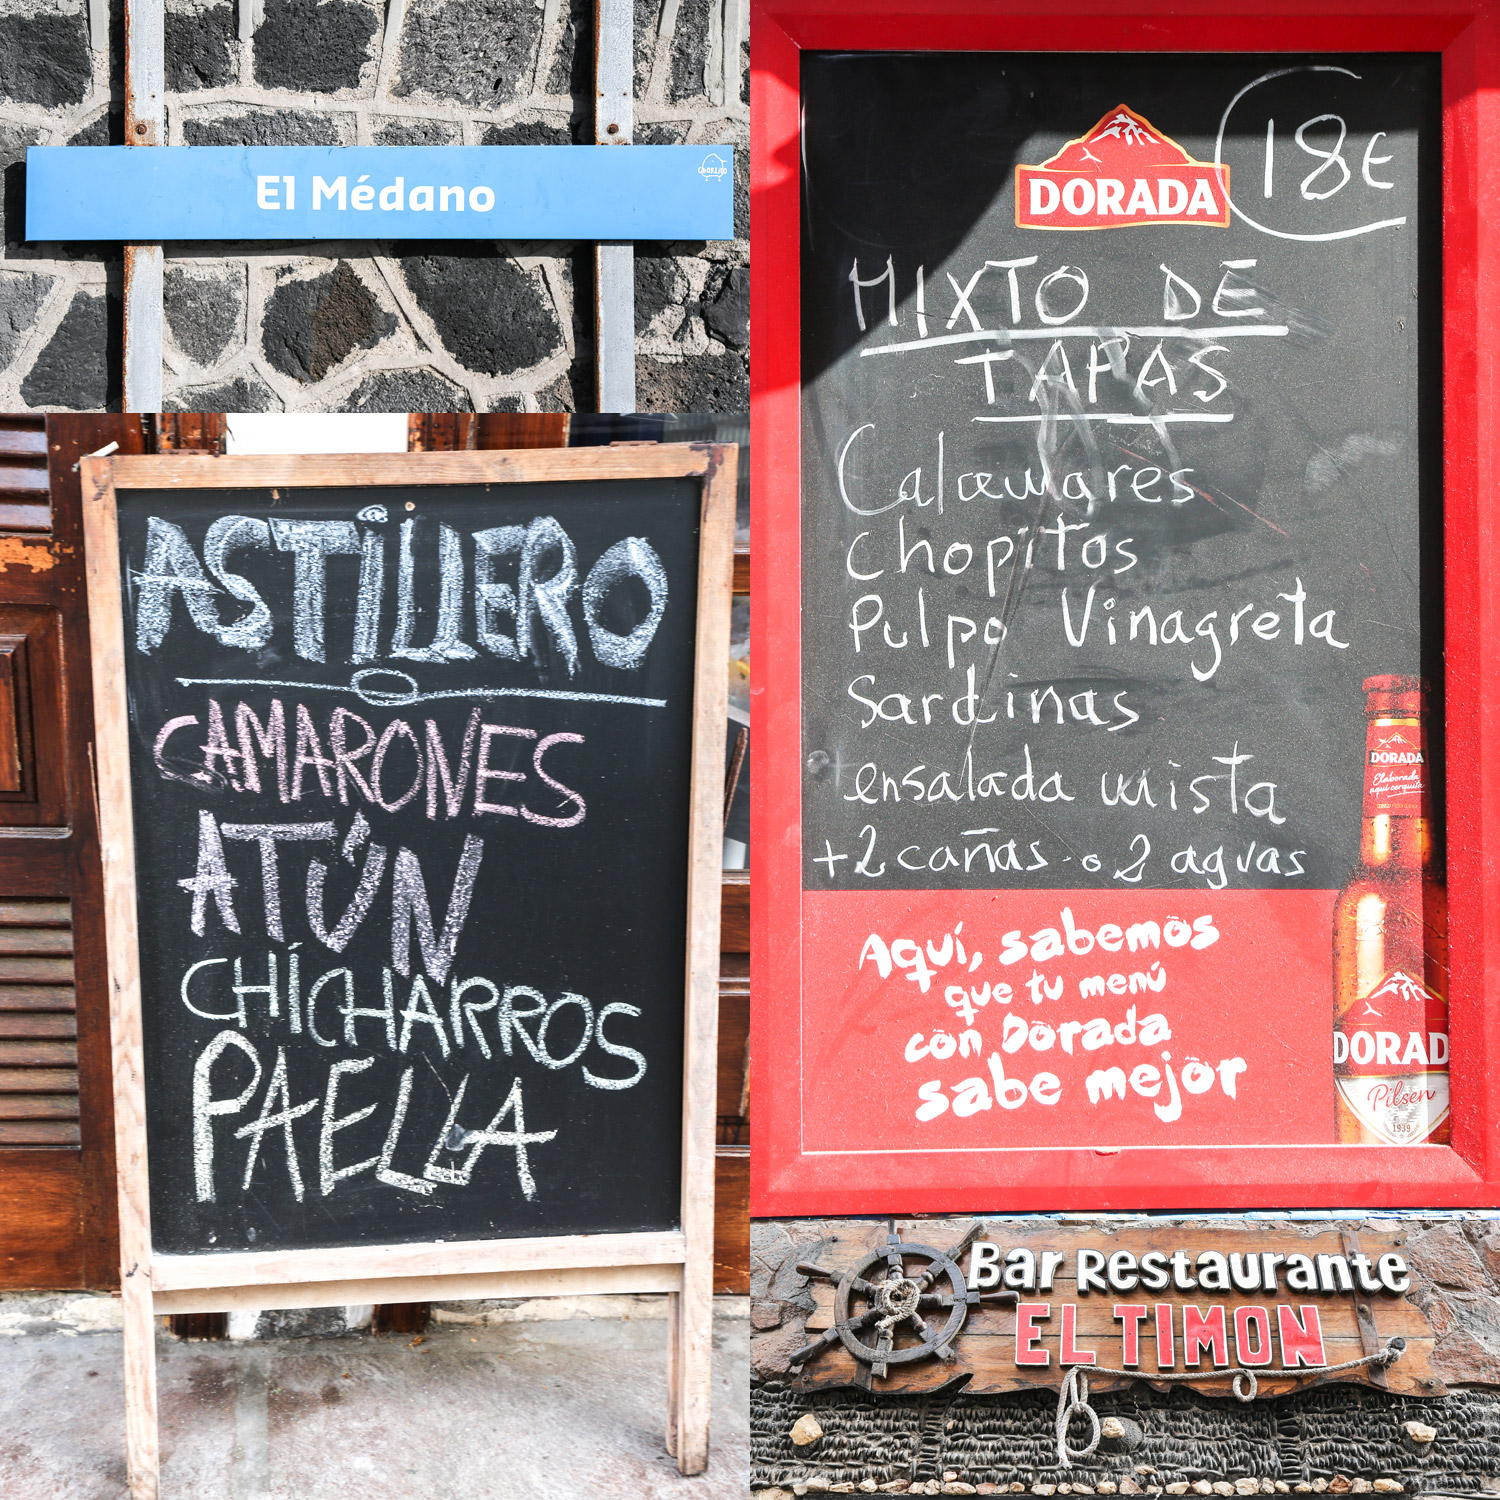 El Médano
ASTILLERO
CAMARONES
ATÚN
CHÍCHARROS
PAELLA
DORADA
18€
MIXTO DE
TAPAS
Calamares
Chopitos
Pulpo Vinagreta
Sardinas
ensalada mista
+2 cañas o 2 aguas
DORADA
Elaborada
aquí cerquita
Aquí, sabemos
que tu menú
con Dorada
sabe mejor
DORAD
Pilsen
1939
Bar Restaurante
EL TIMON